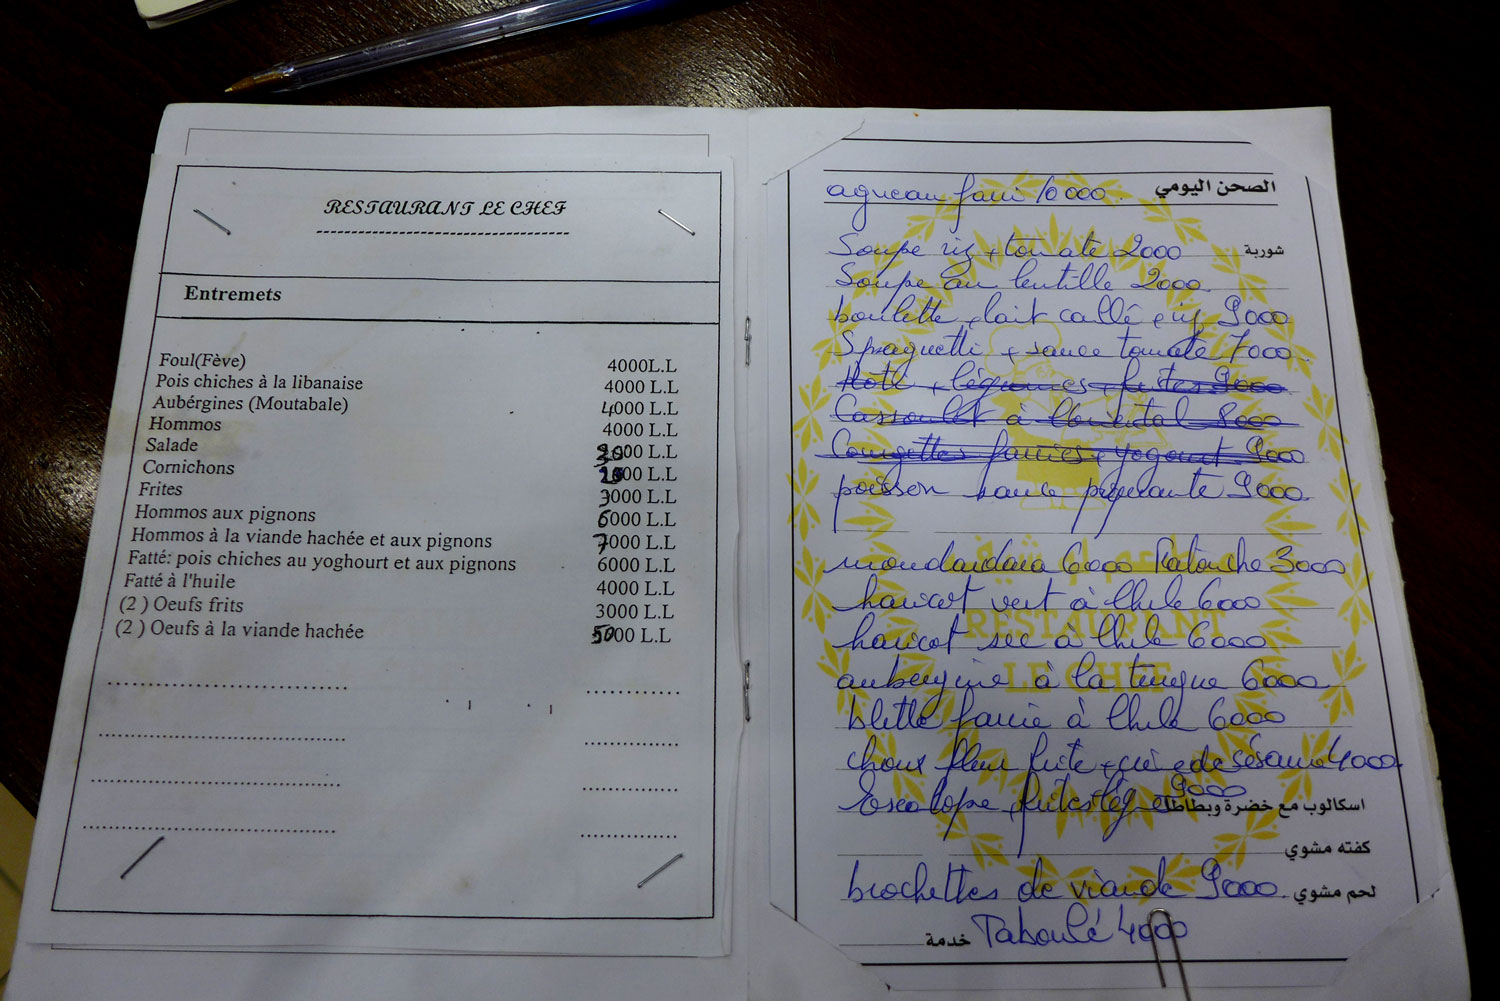 RESTAURANT LE CHEF
Entremets
Foul(Fève) 4000L.L
Pois chiches à la libanaise 4000 L.L
Aubérgines (Moutabale) 4000 L.L
Hommos 4000 L.L
Salade 3000 L.L
Cornichons 2000 L.L
Frites 3000 L.L
Hommos aux pignons 6000 L.L
Hommos à la viande hachée et aux pignons 7000 L.L
Fatté: pois chiches au yoghourt et aux pignons 6000 L.L
Fatté à l'huile 4000 L.L
(2 ) Oeufs frits 3000 L.L
(2 ) Oeufs à la viande hachée 5000 L.L
agneau farci 10000 الصحن اليومي
Soupe riz + tomate 2000 شوربة
Soupe au lentille 2000
boulette + lait caillé + riz 9000
Spaguetti + sauce tomate 7000
Roti + légumes + frites 9000
Cassoulet à l'oriental 8000
Courgettes farcies + yogourt 9000
poisson sauce piquante 9000
moudardara 6000 Fatouche 3000
haricot vert à l'huile 6000
haricot sec à l'huile 6000
RESTAURANT
aubergine à la turque 6000
LE CHEF
blette farcie à l'huile 6000
choux fleur frite + de sésame 4000
Escalope + frites + lég 9000 اسكالوب مع خضرة وبطاطا
كفته مشوي
brochettes de viande 9000 لحم مشوي
Taboulé 4000 خدمة